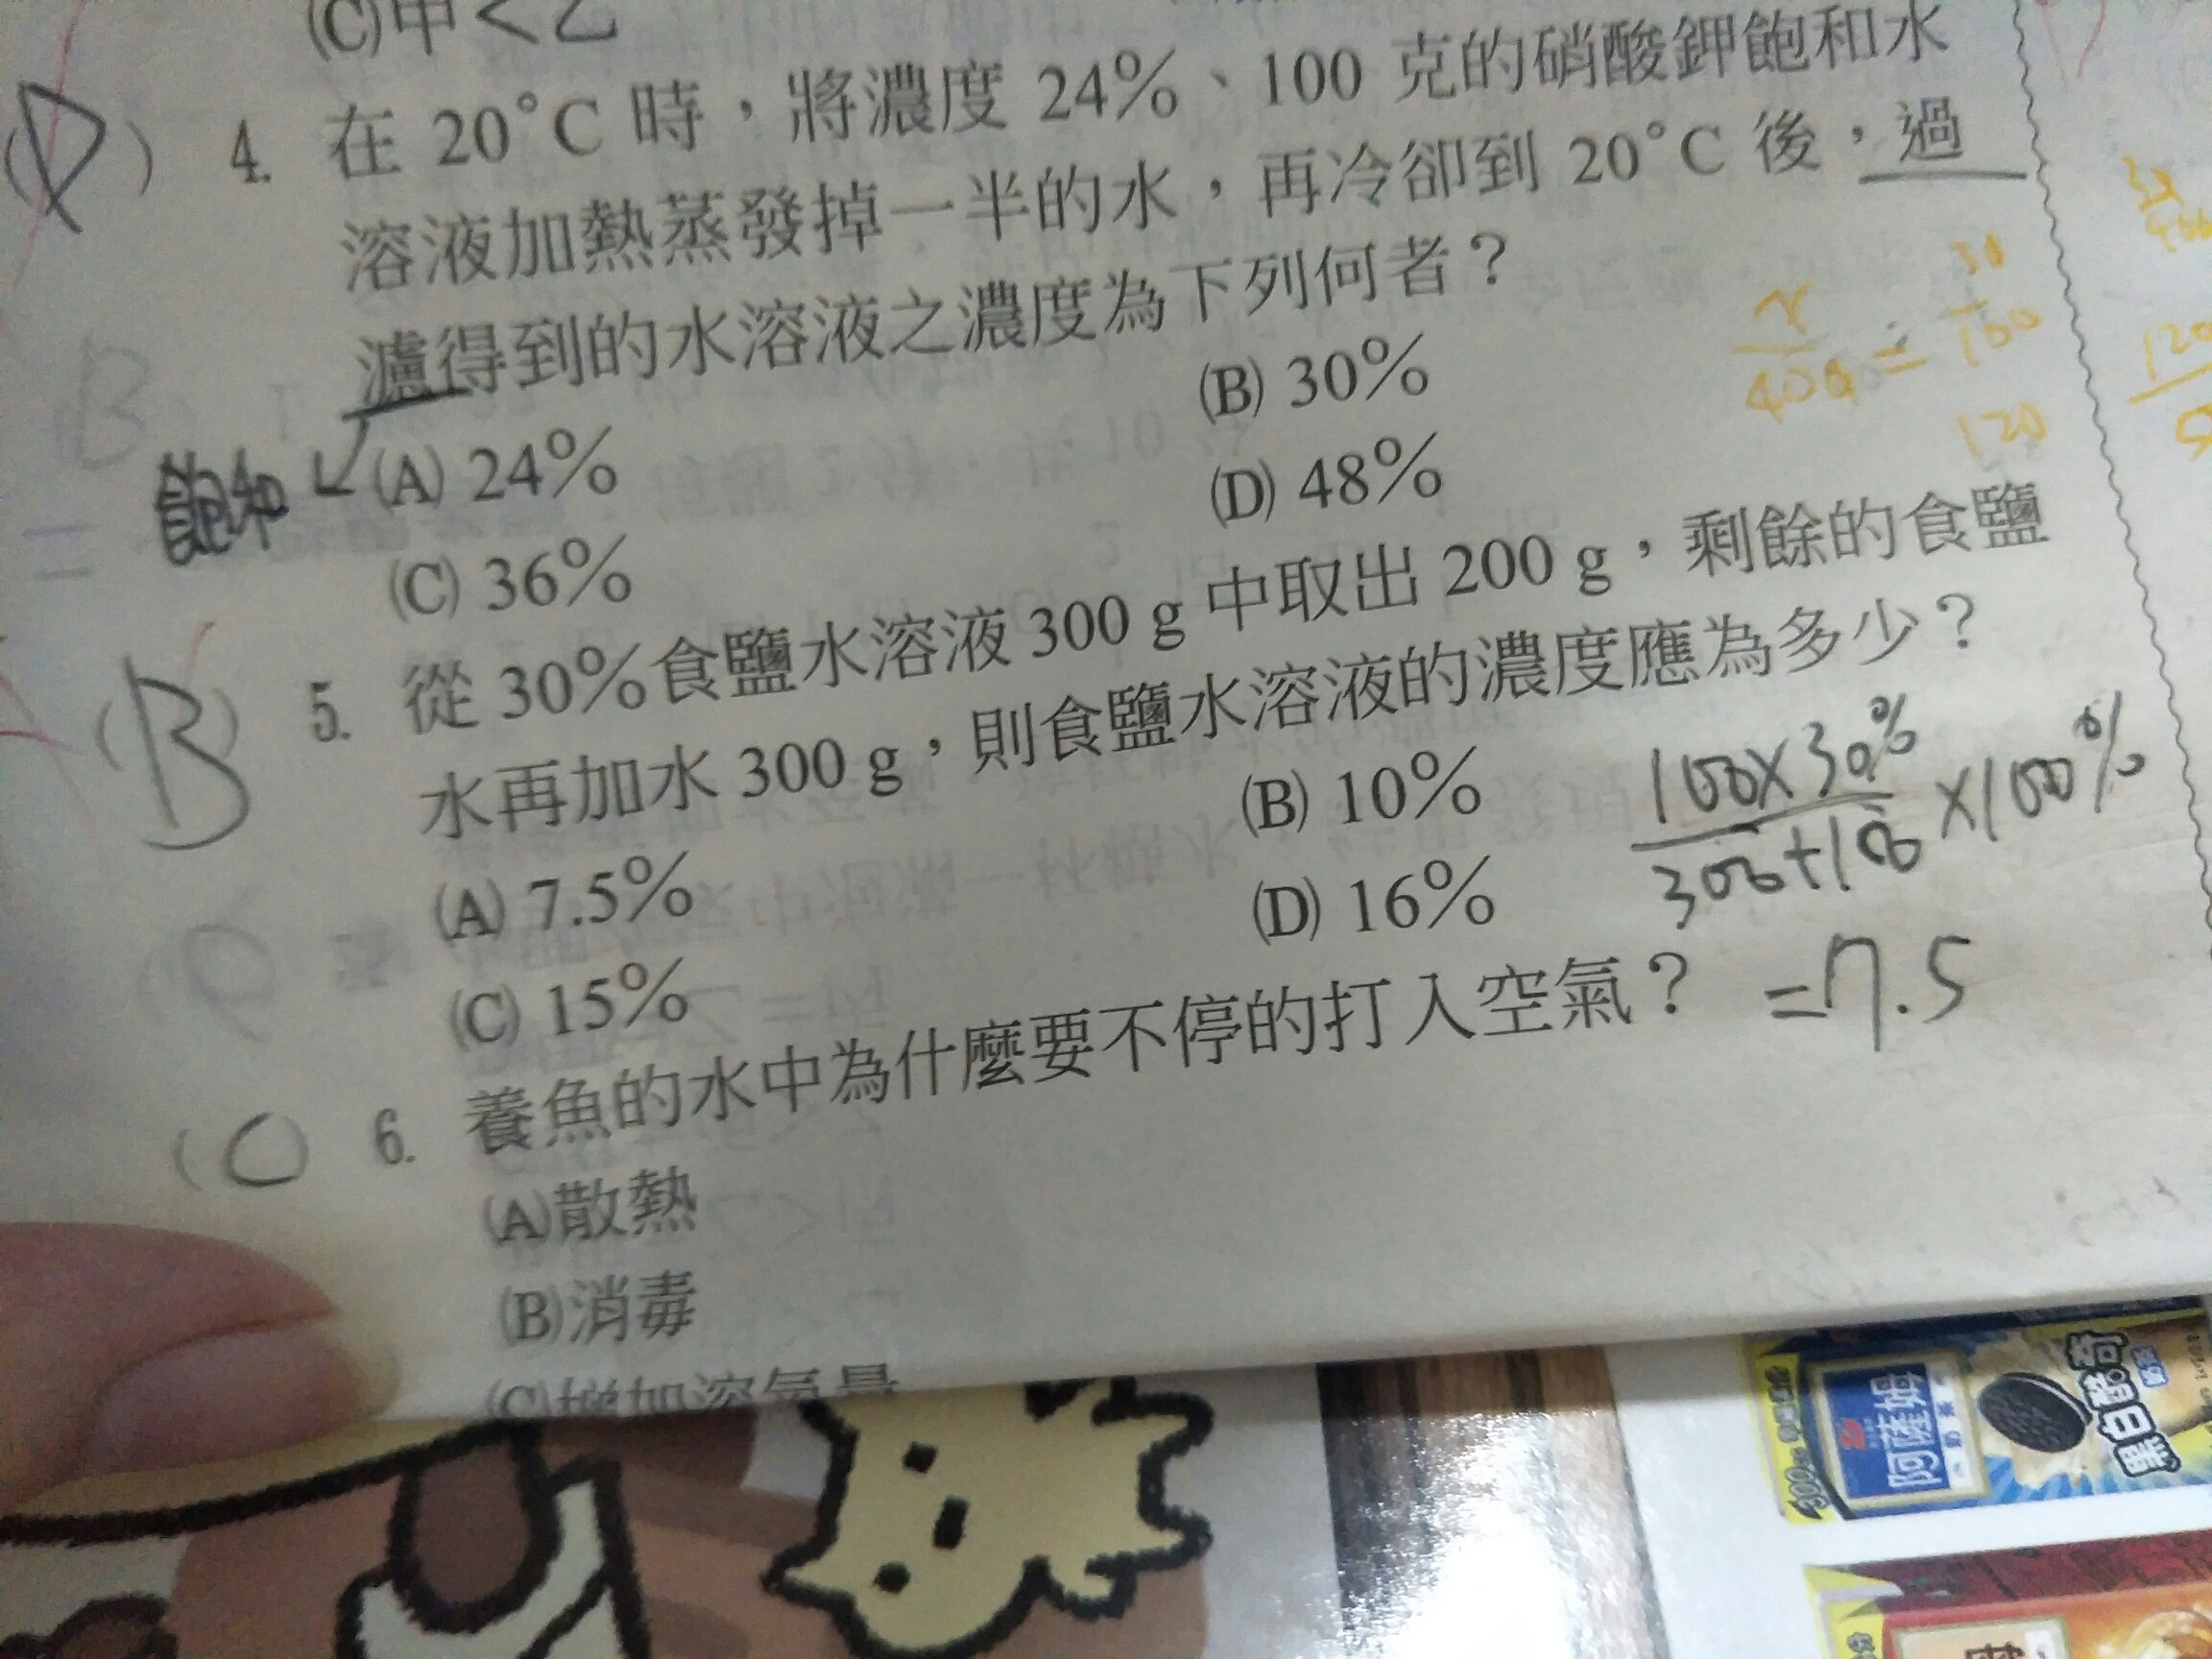 (C)甲<乙
(D) 4. 在 20°C 時，將濃度 24%、100 克的硝酸鉀飽和水
溶液加熱蒸發掉一半的水，再冷卻到 20°C 後，過
濾得到的水溶液之濃度為下列何者？
飽和
(A) 24%
(B) 30%
(C) 36%
(D) 48%
x/400 = 30/100
120
(B) 5. 從 30%食鹽水溶液 300 g 中取出 200 g，剩餘的食鹽
水再加水 300 g，則食鹽水溶液的濃度應為多少？
(A) 7.5%
(B) 10%
(C) 15%
(D) 16%
100×30%
300+100 ×100%
=7.5
(C) 6. 養魚的水中為什麼要不停的打入空氣？
(A)散熱
(B)消毒
(C)增加溶氧量
阿薩姆
奶茶
黑白酷奇